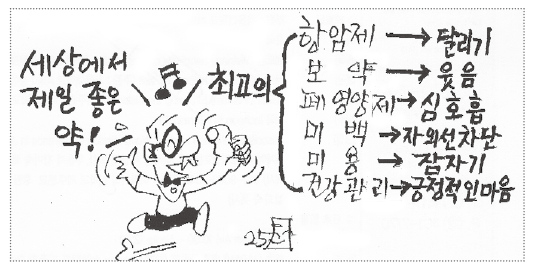 세상에서
제일 좋은
약!
최고의
항암제 → 달리기
보약 → 웃음
폐영양제 → 심호흡
미백 → 자외선차단
미용 → 잠자기
건강관리 → 긍정적인마음